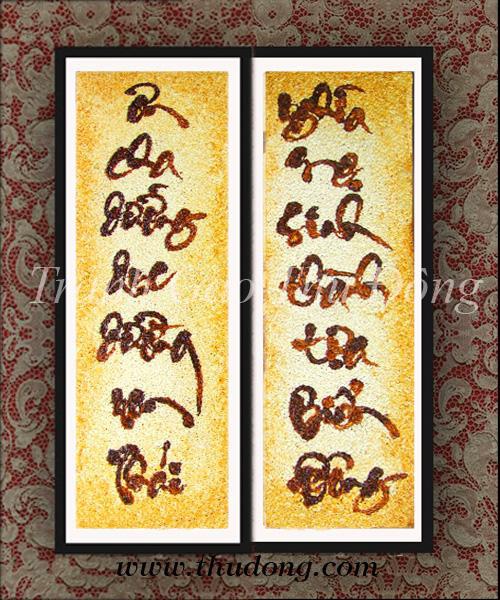 Ơn
Cha
dưỡng
dục
dường
non
Thái
Nghĩa
mẹ
sinh
thành
tựa
Biển
Đông
Tranh Gạo Thu Đông
www.thudong.com